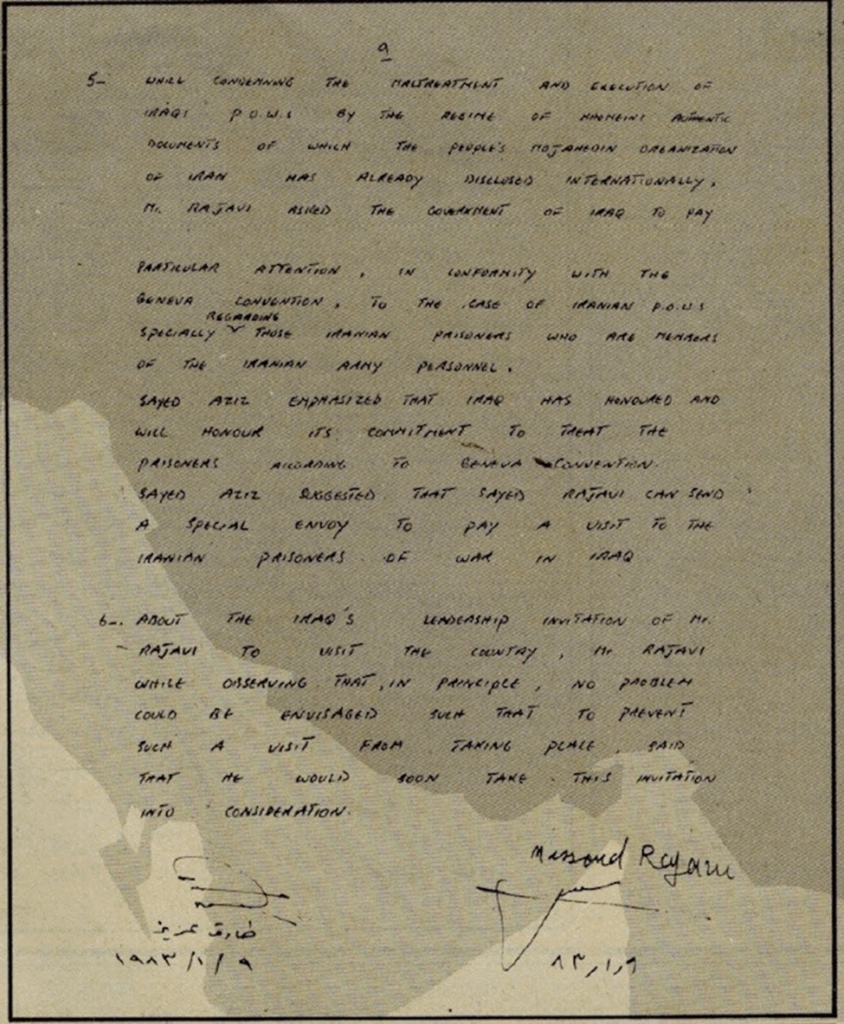 9
5- WHILE CONDEMNING THE MALTREATMENT AND EXECUTION OF
IRAQI P.O.W.S BY THE REGIME OF KHOMEINI AUTHENTIC
DOCUMENTS OF WHICH THE PEOPLE'S MOJAHEDIN ORGANIZATION
OF IRAN HAS ALREADY DISCLOSED INTERNATIONALLY,
Mr. RAJAVI ASKED THE GOVERNMENT OF IRAQ TO PAY
PARTICULAR ATTENTION, IN CONFORMITY WITH THE
GENEVA CONVENTION, TO THE CASE OF IRANIAN P.O.W.S
REGARDING
SPECIALLY THOSE IRANIAN PRISONERS WHO ARE MEMBERS
OF THE IRANIAN ARMY PERSONNEL.
SAYED AZIZ EMPHASIZED THAT IRAQ HAS HONOURED AND
WILL HONOUR ITS COMMITMENT TO TREAT THE
PRISONERS ACCORDING TO GENEVA CONVENTION.
SAYED AZIZ SUGGESTED THAT SAYED RAJAVI CAN SEND
A SPECIAL ENVOY TO PAY A VISIT TO THE
IRANIAN PRISONERS OF WAR IN IRAQ
6-. ABOUT THE IRAQ'S LEADERSHIP INVITATION OF Mr.
RAJAVI TO VISIT THE COUNTRY, Mr RAJAVI
WHILE OBSERVING THAT, IN PRINCIPLE, NO PROBLEM
COULD BE ENVISAGED SUCH THAT TO PREVENT
SUCH A VISIT FROM TAKING PLACE, SAID
THAT HE WOULD SOON TAKE THIS INVITATION
INTO CONSIDERATION.
Massoud Rajavi
طارق عزيز
١٩٨٣/١/٩
٨٣,١,٩